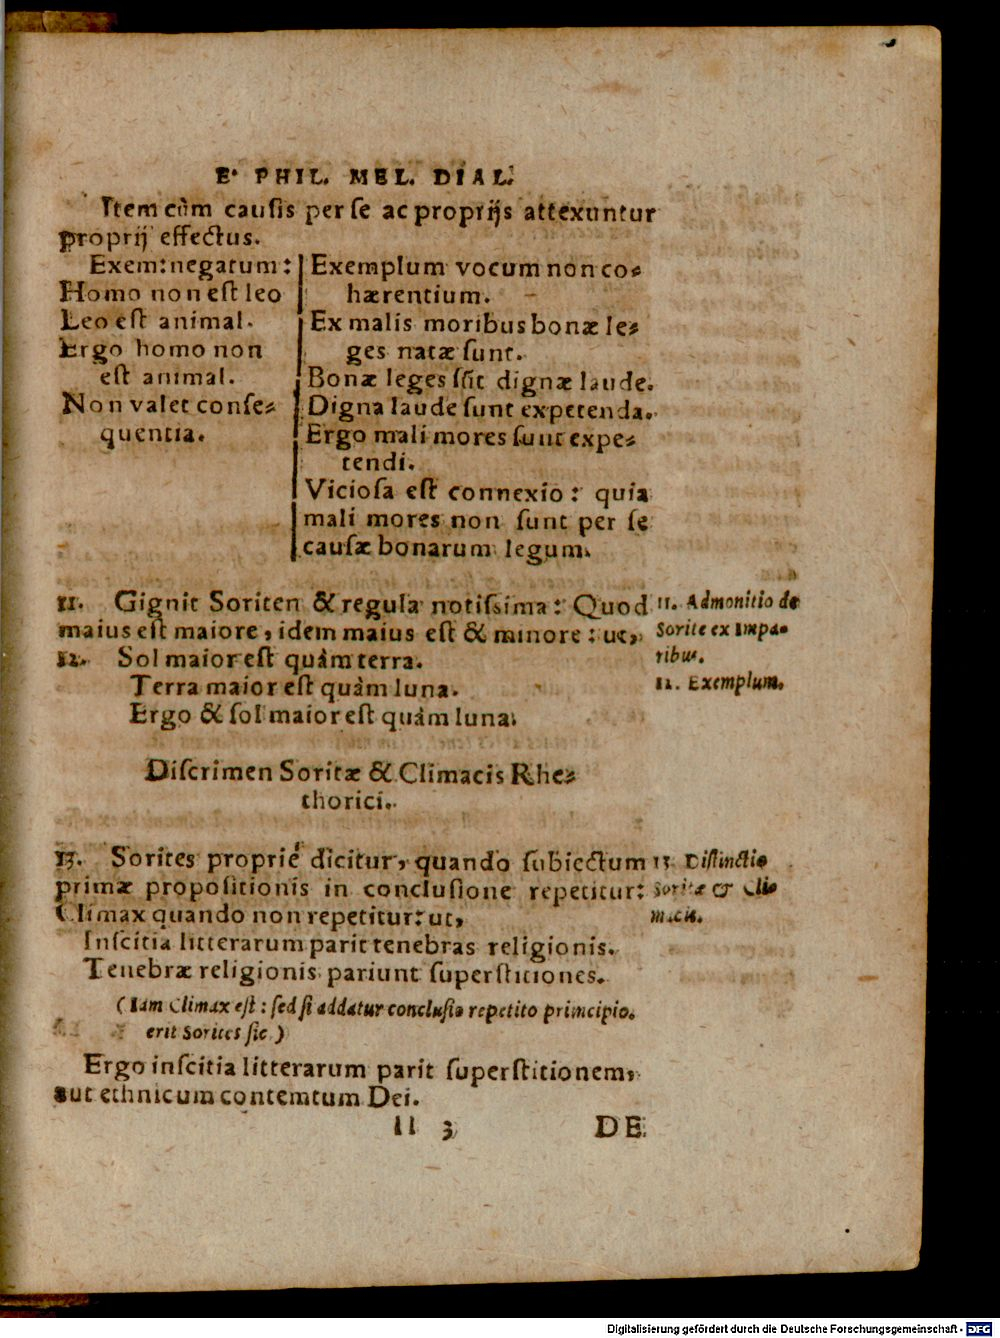 E. PHIL. MEL. DIAL.
Item cùm causis per se ac proprijs attexuntur
proprij effectus.
Exem: negatum:
Homo non est leo
Leo est animal.
Ergo homo non
est animal.
Non valet conse⸗
quentia.
Exemplum vocum non co⸗
hærentium.
Ex malis moribus bonæ le⸗
ges natæ sunt.
Bonæ leges sūt dignæ laude.
Digna laude sunt expetenda.
Ergo mali mores sunt expe⸗
tendi.
Viciosa est connexio: quia
mali mores non sunt per se
causæ bonarum legum.
11. Gignit Soriten & regula notissima: Quod
maius est maiore, idem maius est & minore: ut,
12. Sol maior est quàm terra.
Terra maior est quàm luna.
Ergo & sol maior est quàm luna.
11. Admonitio de
Sorite ex impa⸗
ribus.
12. Exemplum.
Discrimen Soritæ & Climacis Rhe⸗
thorici.
13. Sorites propriè dicitur, quando subiectum
primæ propositionis in conclusione repetitur:
Climax quando non repetitur: ut,
13. Distinctio
Soritæ & Cli⸗
macis.
Inscitia litterarum parit tenebras religionis.
Tenebræ religionis pariunt superstitiones.
(Iam Climax est: sed si addatur conclusio repetito principio.
erit Sorites sic)
Ergo inscitia litterarum parit superstitionem,
aut ethnicum contemtum Dei.
II 3 DE
Digitalisierung gefördert durch die Deutsche Forschungsgemeinschaft - DFG